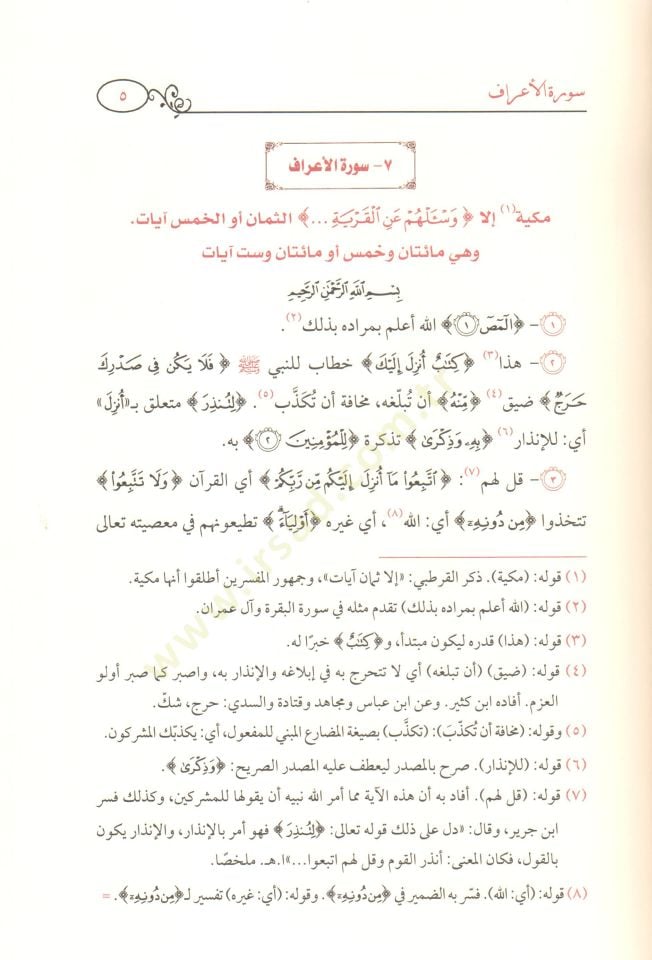 سورة الأعراف
٥
٧- سورة الأعراف
مكية(١) إلا ﴿وَسْـَٔلْهُمْ عَنِ ٱلْقَرْيَةِ ...﴾ الثمان أو الخمس آيات.
وهي مائتان وخمس أو مائتان وست آيات
بِسْمِ اللَّهِ الرَّحْمَٰنِ الرَّحِيمِ
١- ﴿الٓمٓصٓ ١﴾ الله أعلم بمراده بذلك(٢).
٢- هذا(٣) ﴿كِتَٰبٌ أُنزِلَ إِلَيْكَ﴾ خطاب للنبي ﷺ ﴿فَلَا يَكُن فِى صَدْرِكَ
حَرَجٌ﴾ ضيق(٤) ﴿مِّنْهُ﴾ أن تُبلّغه، مخافة أن تُكذَّب(٥). ﴿لِتُنذِرَ﴾ متعلق بـ«أُنزِلَ»
أي: للإنذار(٦) ﴿بِهِۦ وَذِكْرَىٰ﴾ تذكرة ﴿لِلْمُؤْمِنِينَ ٢﴾ به.
٣- قل لهم(٧): ﴿ٱتَّبِعُوا۟ مَآ أُنزِلَ إِلَيْكُم مِّن رَّبِّكُمْ﴾ أي القرآن ﴿وَلَا تَتَّبِعُوا۟﴾
تتخذوا ﴿مِن دُونِهِۦٓ﴾ أي: الله(٨)، أي غيره ﴿أَوْلِيَآءَ﴾ تطيعونهم في معصيته تعالى
(١) قوله: (مكية). ذكر القرطبي: «إلا ثمان آيات»، وجمهور المفسرين أطلقوا أنها مكية.
(٢) قوله: (الله أعلم بمراده بذلك) تقدم مثله في سورة البقرة وآل عمران.
(٣) قوله: (هذا) قدره ليكون مبتدأ، و﴿كِتَٰبٌ﴾ خبرًا له.
(٤) قوله: (ضيق) (أن تبلغه) أي لا تتحرج به في إبلاغه والإنذار به، واصبر كما صبر أولو
العزم. أفاده ابن كثير. وعن ابن عباس ومجاهد وقتادة والسدي: حرج، شكّ.
(٥) وقوله: (مخافة أن تُكذّبَ): (تكذَّب) بصيغة المضارع المبني للمفعول، أي: يكذبّك المشركون.
(٦) قوله: (للإنذار). صرح بالمصدر ليعطف عليه المصدر الصريح: ﴿وَذِكْرَىٰ﴾.
(٧) قوله: (قل لهم). أفاد به أن هذه الآية مما أمر الله نبيه أن يقولها للمشركين، وكذلك فسر
ابن جرير، وقال: «دل على ذلك قوله تعالى: ﴿لِتُنذِرَ﴾ فهو أمر بالإنذار، والإنذار يكون
بالقول، فكان المعنى: أنذر القوم وقل لهم اتبعوا...»ا.هـ. ملخصًا.
(٨) قوله: (أي: الله). فسّر به الضمير في ﴿مِن دُونِهِۦٓ﴾. وقوله: (أي: غيره) تفسير لـ﴿مِن دُونِهِۦٓ﴾. =
www.irsad.com.tr